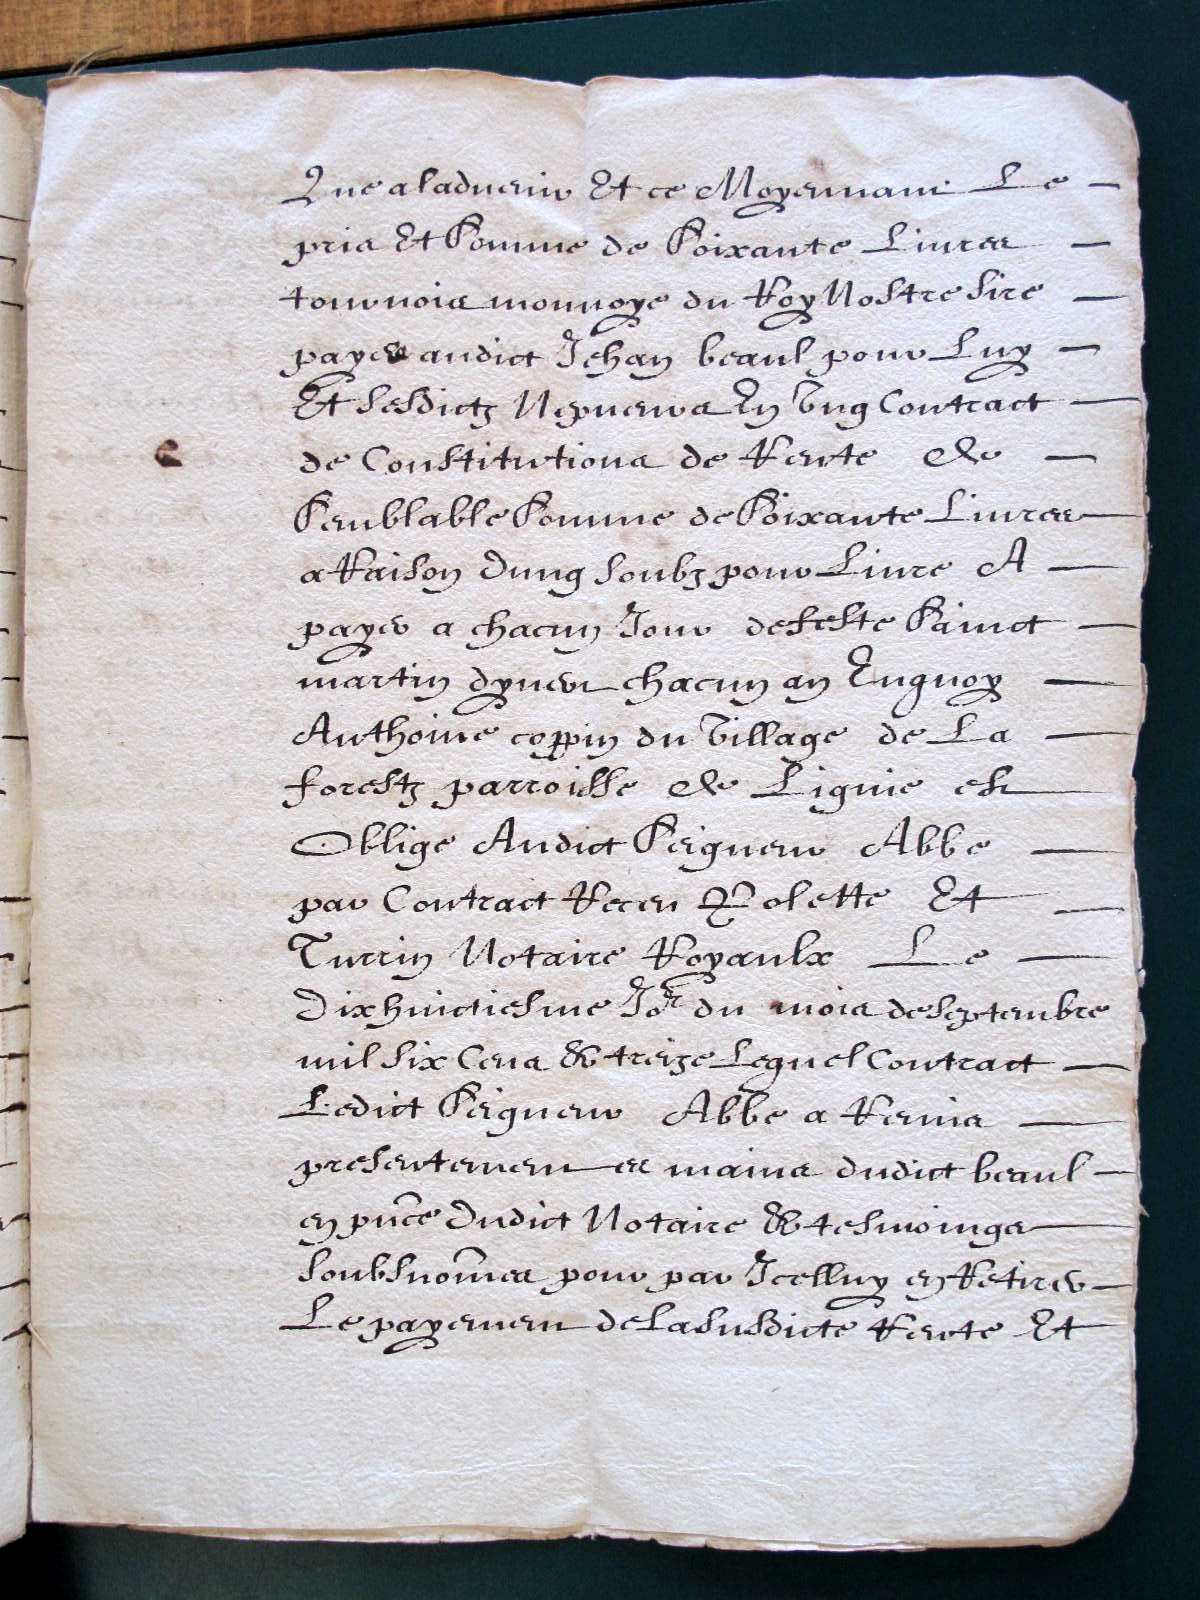 Que aladvenir Et ce Moyennant Le
pris Et Somme de Soixante Livres
tournois monnoye du Roy Nostre Sire
payes audict Jehan beaul pour Luy
Et Sesdictz Nepveurs En Ung Contract
de Constitutions de Rente de
Semblable Somme de Soixante Livres
a Raison dung Soubz pour Livre A
payer a chacun Jour de feste Sainct
martin dyver chacun an Enquoy
Anthoine coppin du Village de La
forestz parroisse de Lignie est
Oblige Audict Seigneur Abbe
par Contract Receu Rolette Et
Turrin Notaire Royaulx Le
Dixhuictiesme Jor du mois de Septembre
mil Six Cens & treize Lequel Contract
Ledict Seigneur Abbe a Remis
presentement es mains dudict beaul
en pnce dudict Notaire & tesmoings
Soubsnomes pour par Icelluy en Retirer
Le payement de La Susdicte Rente Et